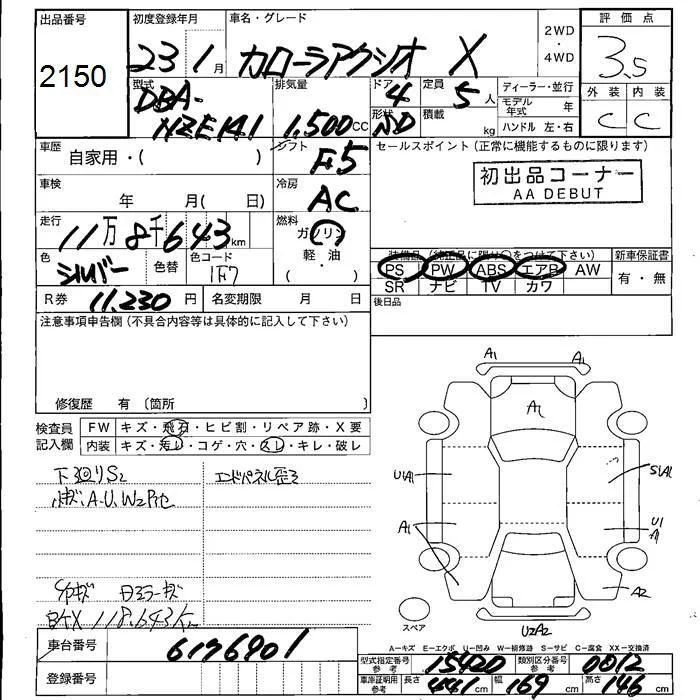 出品番号
2150
初度登録年月
23 1月
車名・グレード
カローラアクシオ X
2WD
・
4WD
評価点
3.5
外装 内装
C C
型式
DBA-
NZE141
排気量
1.500cc
ドア
4
形状
ND
定員
5人
積載
kg
ディーラー・並行
モデル年式 年
ハンドル 左・右
車歴
自家用・( )
シフト
F5
セールスポイント(正常に機能するものに限ります)
初出品コーナー
AA DEBUT
車検
年 月( 日)
冷房
AC
走行
11万8千643km
燃料
ガソリン
軽・油
( )
色
シルバー
色替
色コード
1F7
装備品(純正品に限り○をつけて下さい)
PS PW ABS エアB AW
SR ナビ TV カワ
新車保証書
有・無
R券 11.230円
名変期限 月 日
後日品
注意事項申告欄(不具合内容等は具体的に記入して下さい)
修復歴 有〔箇所 〕
検査員
記入欄
FW キズ・飛石・ヒビ割・リペア跡・X要
内装 キズ・汚レ・コゲ・穴・スレ・キレ・破レ
下回りS2
小キズ、A・U、W2
エンドパネル歪ミ
118.643K
車台番号
6176901
A1
A1
A1
U1A1
S1A1
A1
U1
A1
A2
U2A2
スペア
A―キズ E―エクボ U―凹み W―補修跡 S―サビ C―腐食 XX―交換済
型式指定番号
参考
15420
類別区分番号
参考
0012
車庫証明用
参考
長さ 441cm
幅 169cm
高さ 146cm